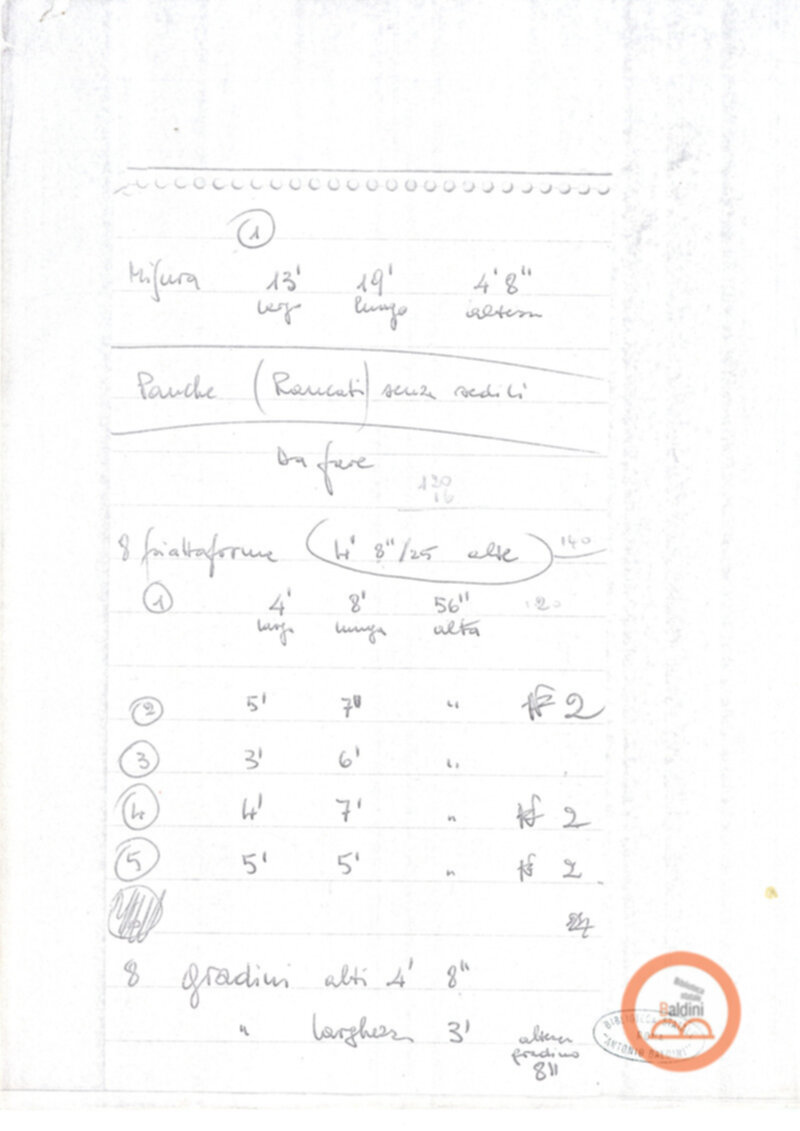 1
Misura 13' 19' 4' 8"
largo lungo altezza
Panche (Rancati) senza sedili
Da fare
120
16
8 piattaforme 4' 8"/25 alte 140
1 4' 8' 56" 120
largo lunga alta
2 5' 7' " # 2
3 3' 6' "
4 4' 7' " # 2
5 5' 5' " # 2
8 gradini alti 4' 8"
" larghezza 3' altezza
gradino
8"
Biblioteca
statale
Baldini
BIBLIOTECA STATALE
ROMA
"ANTONIO BALDINI"